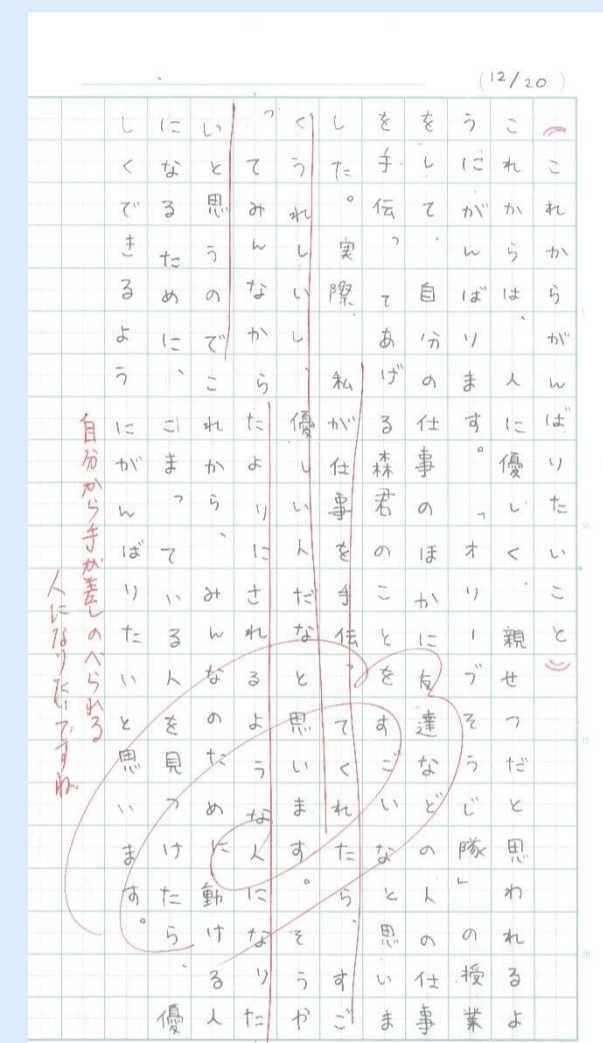 (12/20)
（これからがんばりたいこと）
これからは、人に優しく、親せつだと思われるよ
うにがんばります。「オリーブそうじ隊」の授業
をして、自分の仕事のほかに友達などの人の仕事
を手伝ってあげる森君のことをすごいなと思いま
した。実際、私が仕事を手伝ってくれたら、すご
くうれしいし、優しい人だなと思います。そうや
ってみんなからたよりにされるような人になりた
いと思うのでこれから、みんなのために動ける人
になるために、こまっている人を見つけたら、優
しくできるようにがんばりたいと思います。
自分から手が差しのべられる
人になりたいですね。
5
10
15
20